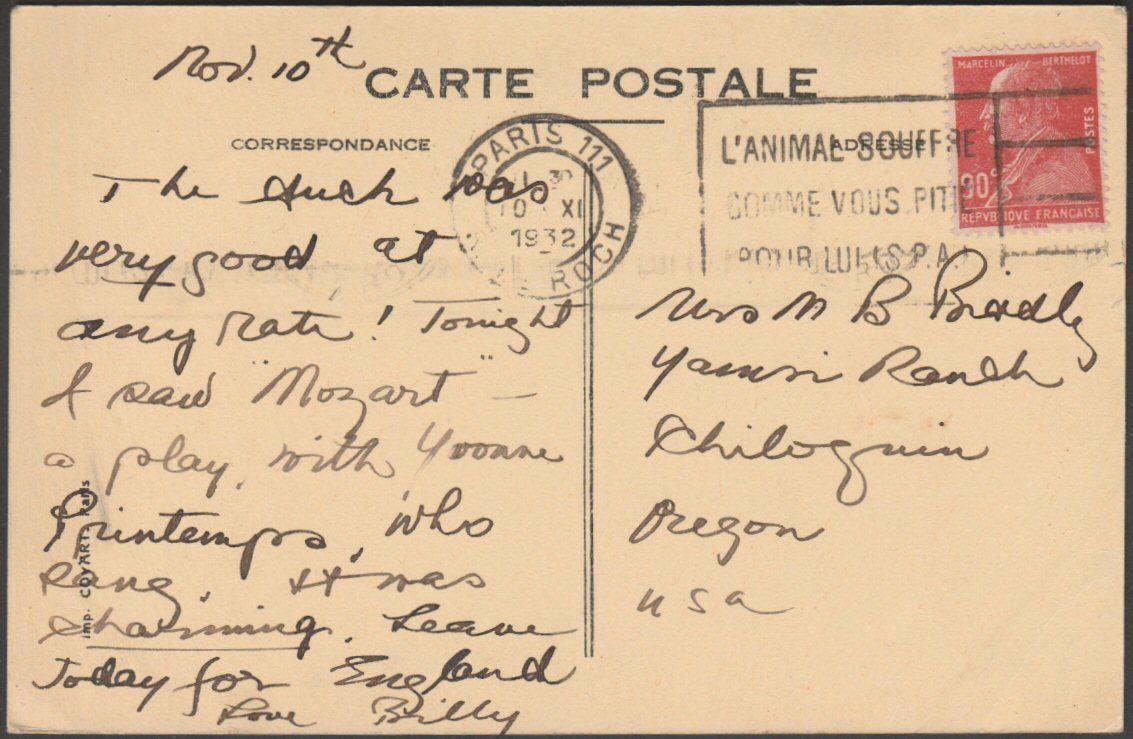 Nov. 10th
CARTE POSTALE
CORRESPONDANCE
ADRESSE
The duck was
very good at
any rate! Tonight
I saw "Mozart" –
a play, with Yvonne
Printemps, who
sang. It was
charming. Leave
Today for England
Love Billy
Imp. COYART. Paris
PARIS 111
30
10 XI
1932
ROCH
L'ANIMAL SOUFFRE
COMME VOUS PITIE
POUR LUI (S.P.A.)
MARCELIN BERTHELOT
POSTES
90c
REPVBLIQVE FRANÇAISE
Mrs M B Bradly
Yamsi Ranch
Chiloquin
Oregon
USA